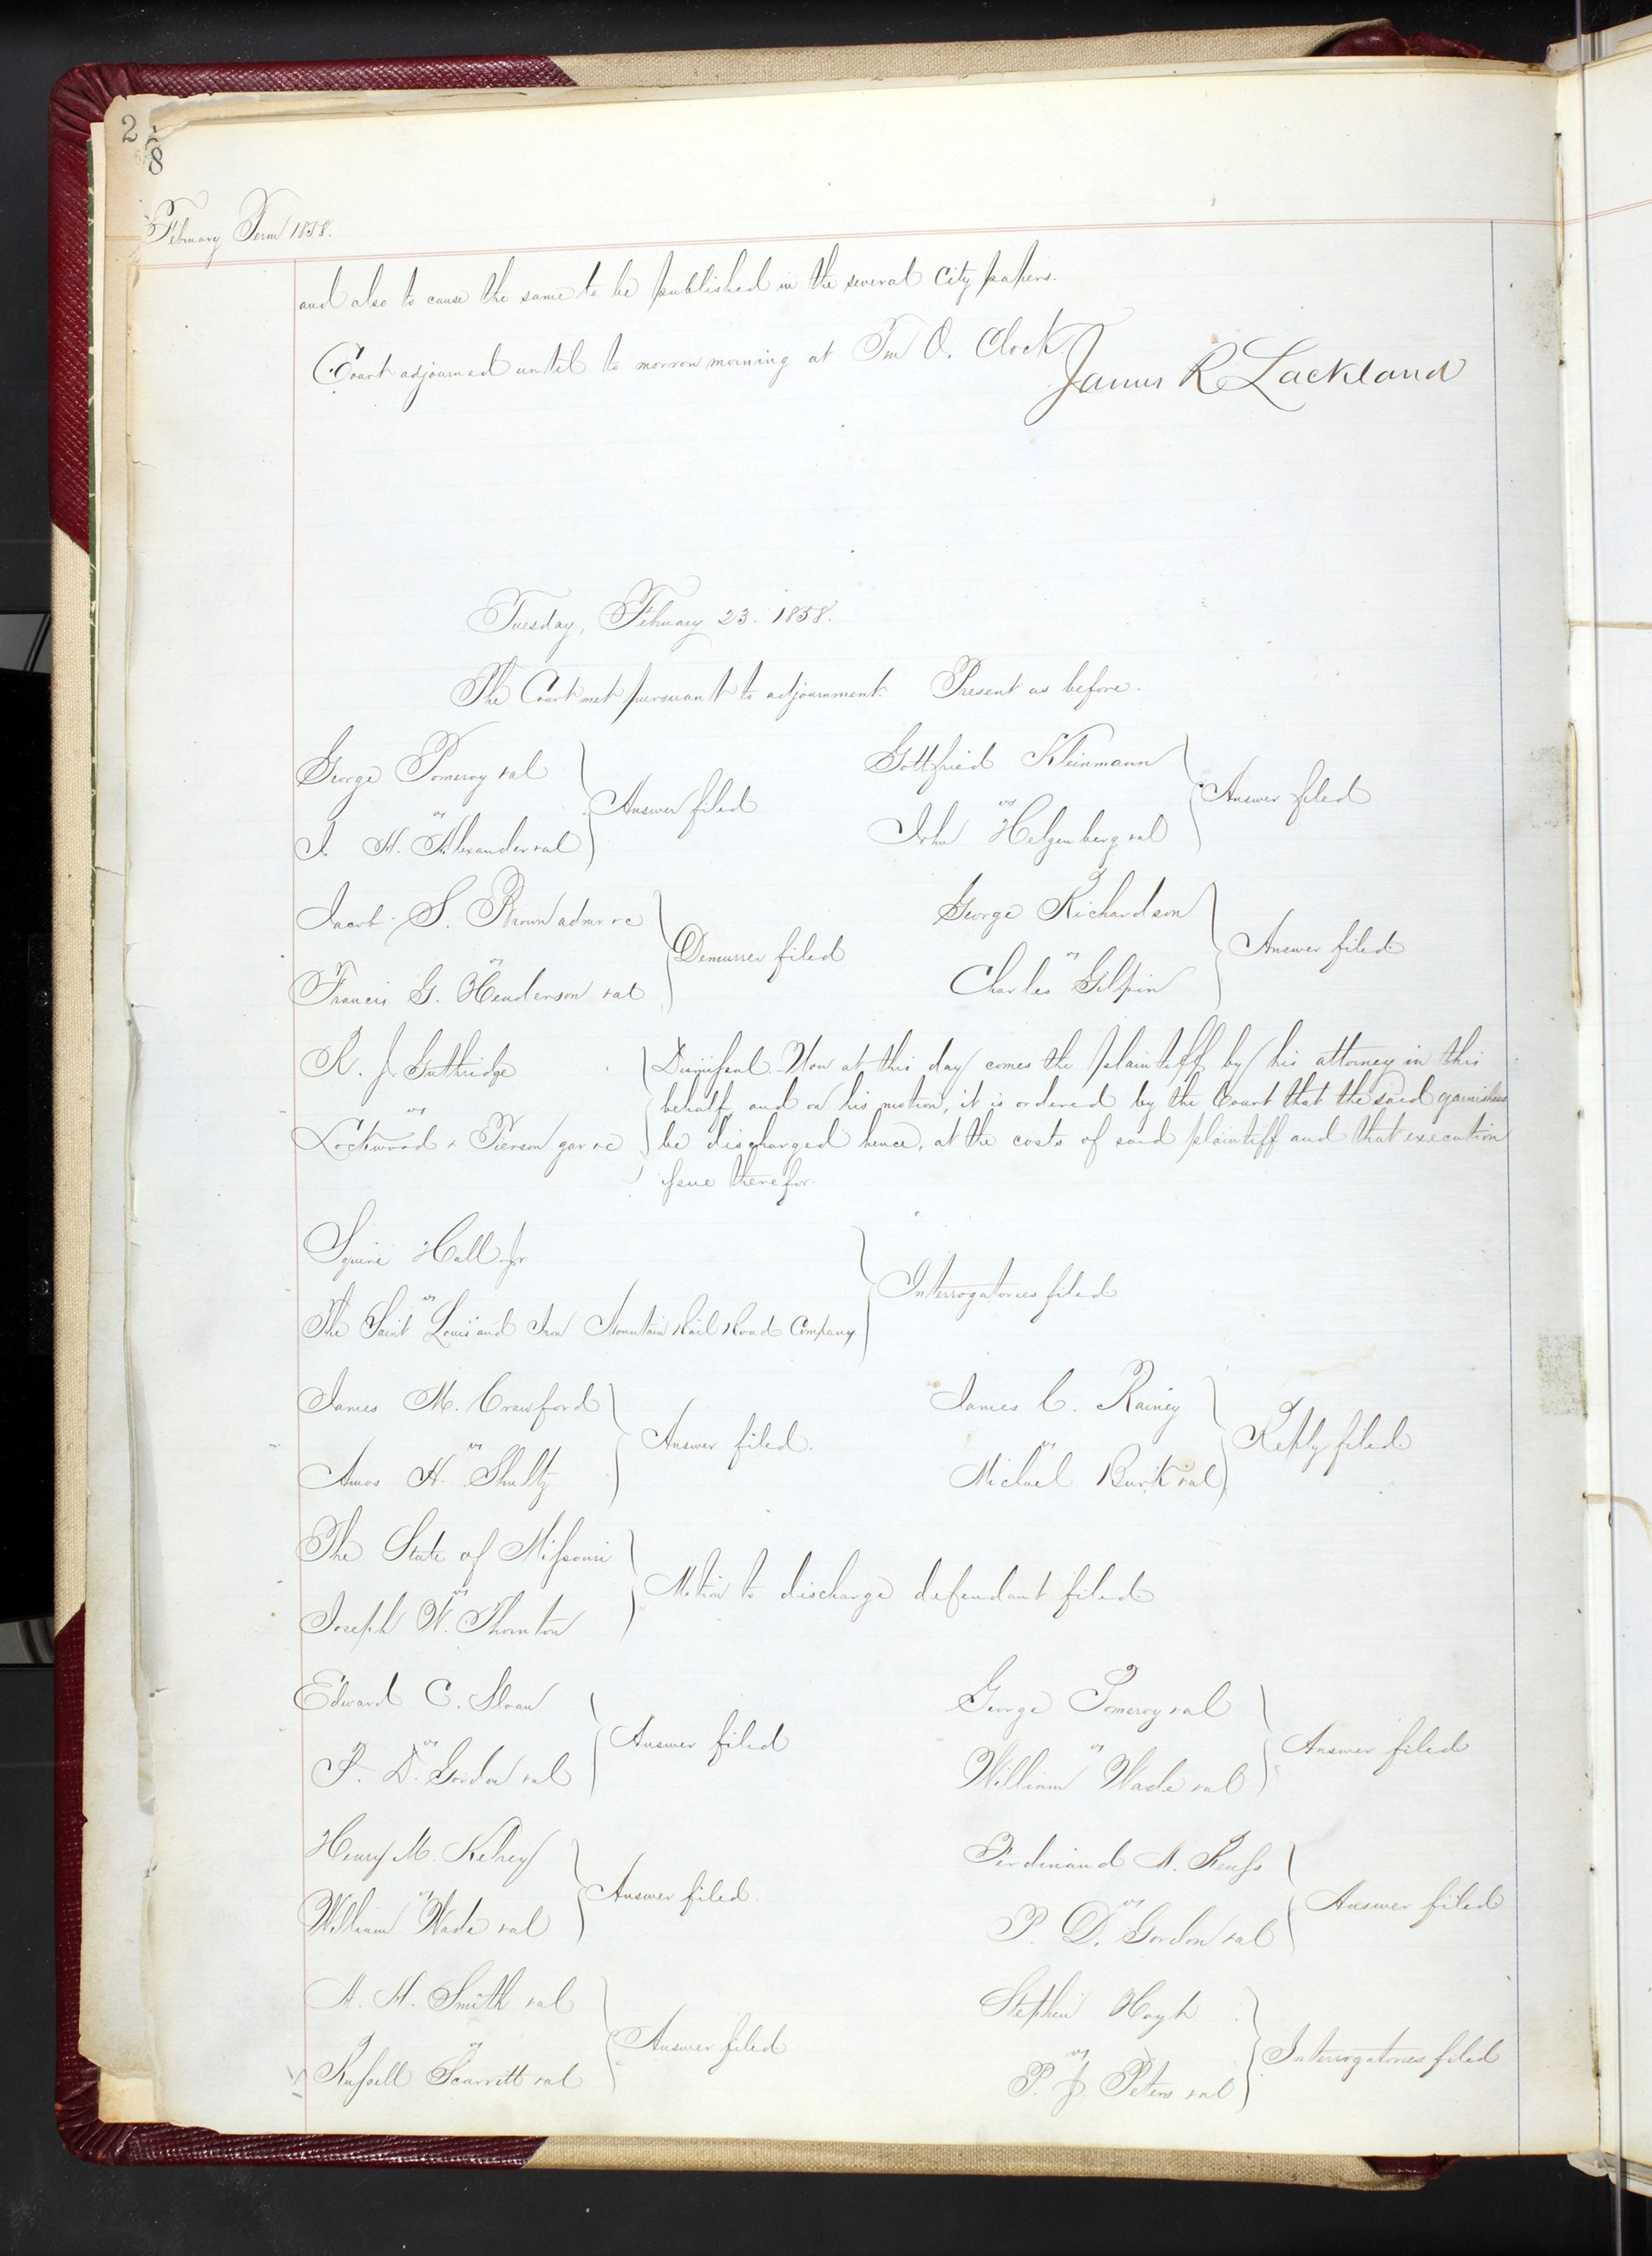 2 8
February Term 1858.
and also to cause the same to be published in the several City papers.
Court adjourned until to morrow morning at Ten O. Clock.
James R Lackland
Tuesday, February 23. 1858.
The Court met pursuant to adjournment. Present as before.
George Pomeroy & al
vs
J. H. Alexander & al
Answer filed
Gottfried Kleinmann
vs
John Helgenberg & al
Answer filed
Jacob S. Brown admr &c
vs
Francis G. Henderson & al
Demurrer filed
George Richardson
vs
Charles Gilpin
Answer filed
R. J. Guthridge
vs
Lockwood & Pierson gar &c
Dismissal. Now at this day comes the plaintiff by his attorney in this
behalf, and on his motion, it is ordered by the Court that the said garnishees
be discharged hence, at the costs of said plaintiff and that execution
issue therefor.
Squire Hall Jr
vs
The Saint Louis and Iron Mountain Rail Road Company
Interrogatories filed
James M. Crawford
vs
Amos H. Shultz
Answer filed.
James C. Rainey
vs
Michael Burk & al
Reply filed
The State of Missouri
vs
Joseph W. Thornton
Motion to discharge defendant filed
Edward C. Sloan
vs
P. D. Gordon & al
Answer filed
George Pomeroy & al
vs
William Wade & al
Answer filed
Henry M. Kelsey
vs
William Wade & al
Answer filed.
Ferdinand A. Reuss
vs
P. D. Gordon & al
Answer filed
A. H. Smith & al
vs
Russell Scarritt & al
Answer filed
Stephen Hoyt
vs
P. J. Peters & al
Interrogatories filed